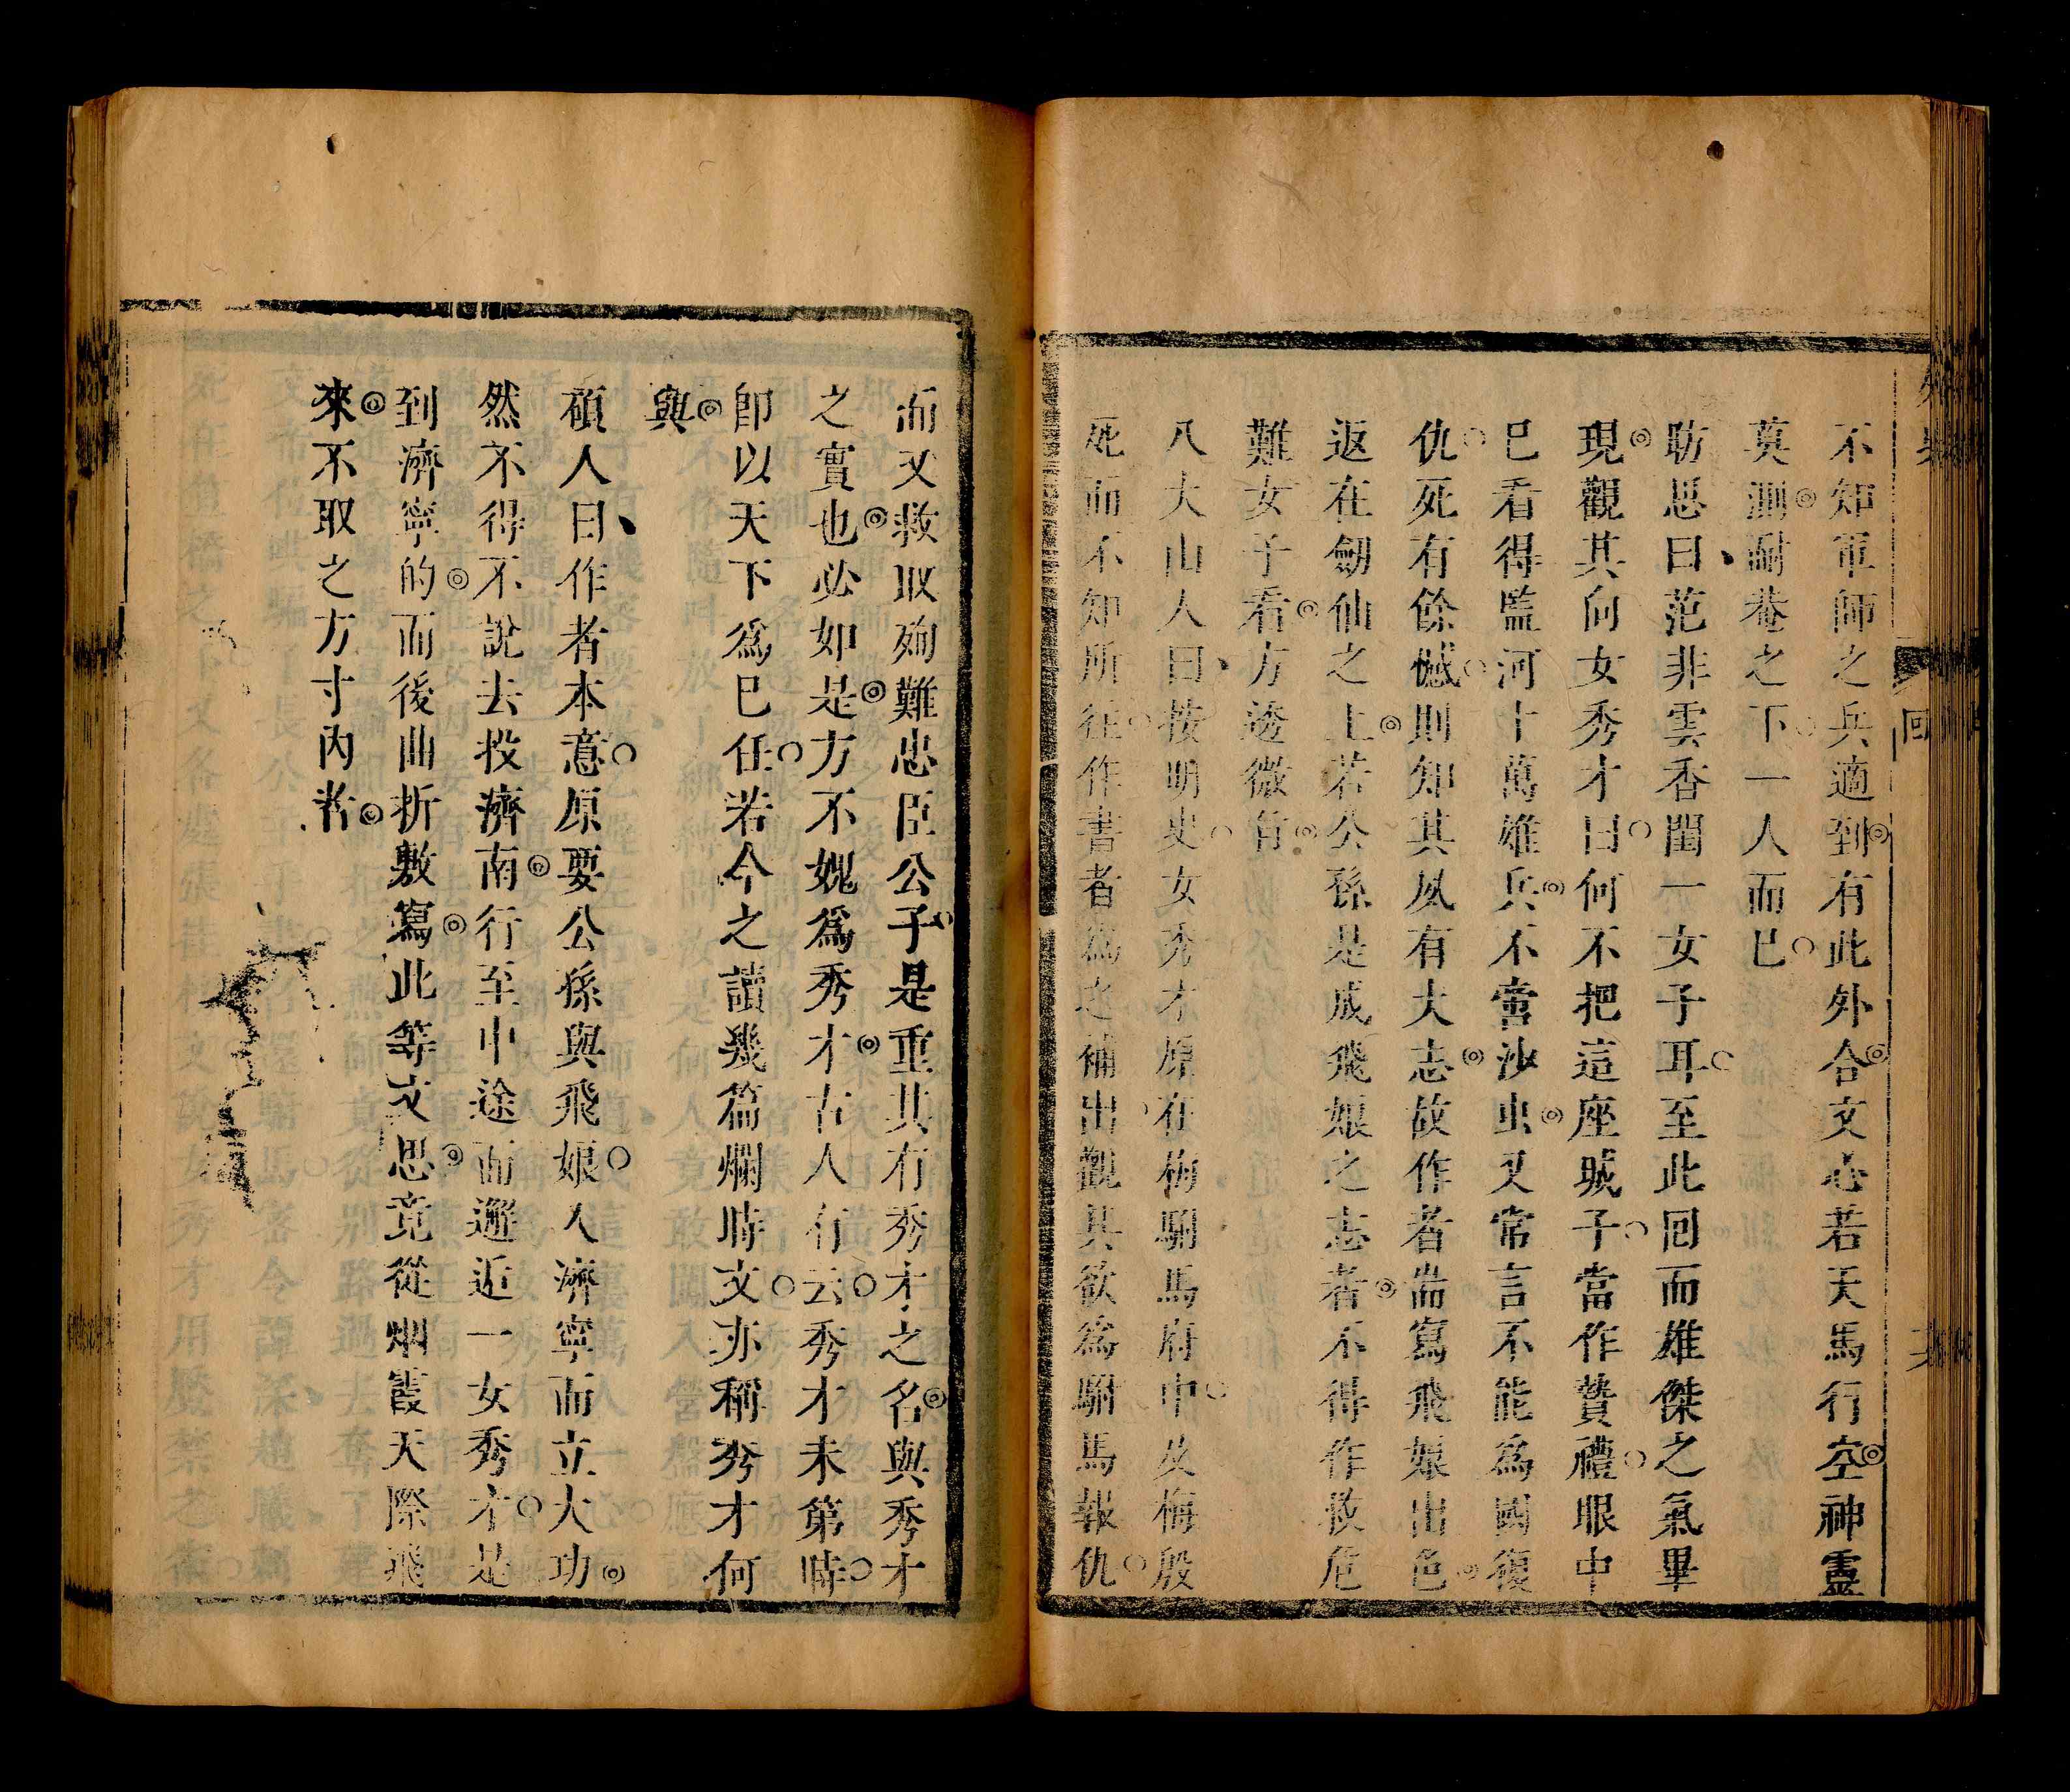 不知軍師之兵適到有此外合文心若天馬行空神靈
莫測耐菴之下一人而已
昉思曰范非雲香閨一女子耳至此回而雄傑之氣畢
現觀其向女秀才曰何不把這座城子當作贄禮眼中
已看得監河十萬雄兵不啻沙虫又常言不能為國復
仇死有餘憾則知其夙有大志故作者耑寫飛娘出色
返在劒仙之上若公孫是成飛娘之志者不得作救危
難女子看方透微旨
八大山人曰按明史女秀才原在梅駙馬府中及梅殷
死而不知所往作書者為之補出觀其欲為駙馬報仇
而又救取殉難忠臣公子是重其有秀才之名與秀才
之實也必如是方不媿為秀才古人有云秀才未第時
即以天下為己任若今之讀幾篇爛時文亦稱秀才何
與
碩人曰作者本意原要公孫與飛娘入濟寧而立大功
然不得不說去投濟南行至中途而邂逅一女秀才是
到濟寧的而後曲折敷寫此等文思竟從烟霞天際飛
來不取之方寸內者